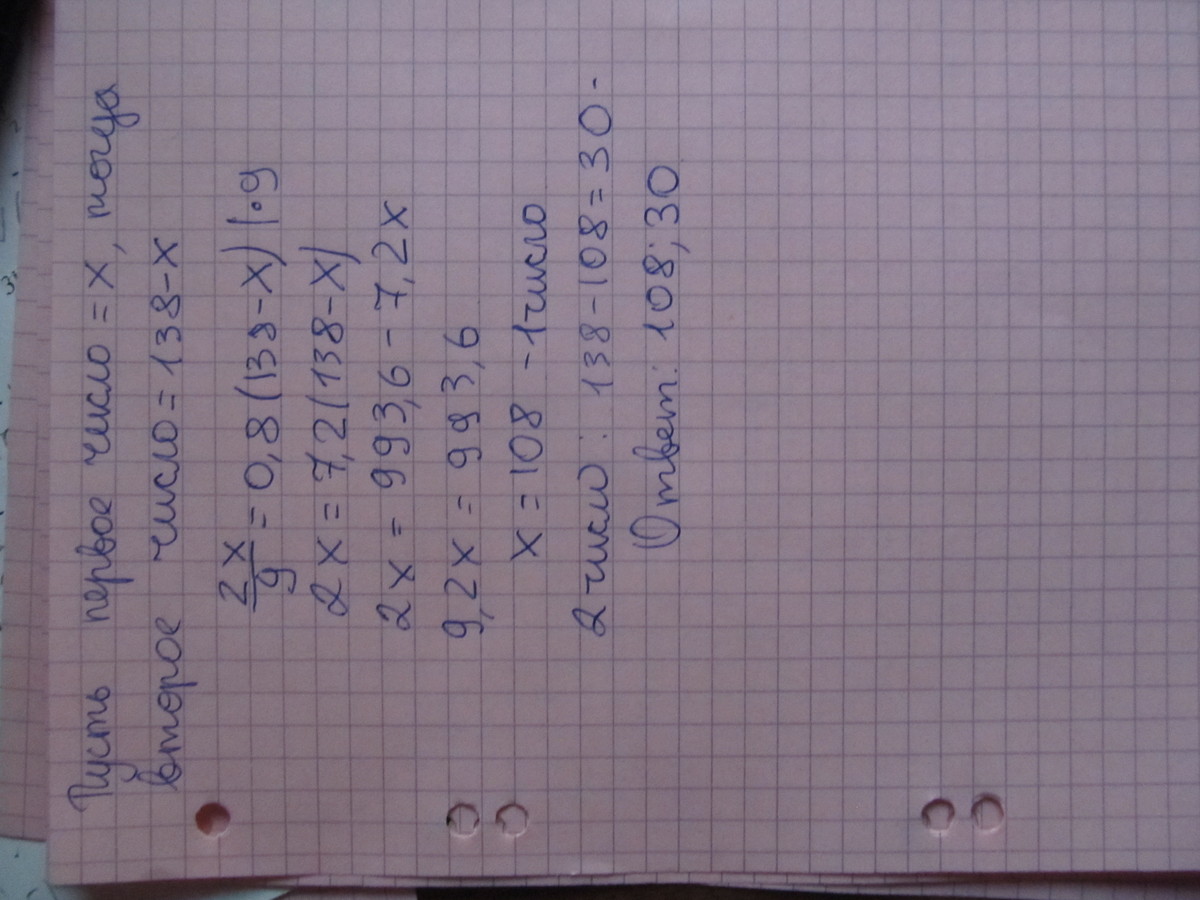 Пусть первое число = x, тогда
второе число = 138-x
2x/9 = 0,8(138-x) |·9
2x = 7,2(138-x)
2x = 993,6 - 7,2x
9,2x = 993,6
x = 108 - 1 число
2 число: 138-108=30 -
Ответ: 108; 30